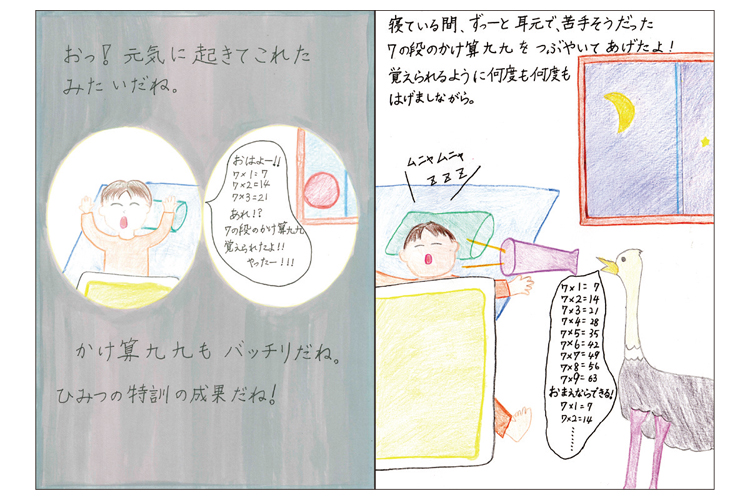 寝ている間、ずっーと 耳元で、苦手そうだった
7の段のかけ算九九 を つぶやいて あげたよ!
覚えられるように何度も何度も
はげましながら。
ムニャムニャ
ZZZ
7×1=7
7×2=14
7×3=21
7×4=28
7×5=35
7×6=42
7×7=49
7×8=56
7×9=63
おまえならできる!
7×1=7
7×2=14
……
おっ! 元気に 起きてこれた
みたいだね。
おはよー!!
7×1=7
7×2=14
7×3=21
あれ!?
7の段のかけ算九九
覚えられたよ!!
やったー!!!
かけ算九九も バッチリだね。
ひみつの特訓の成果だね!